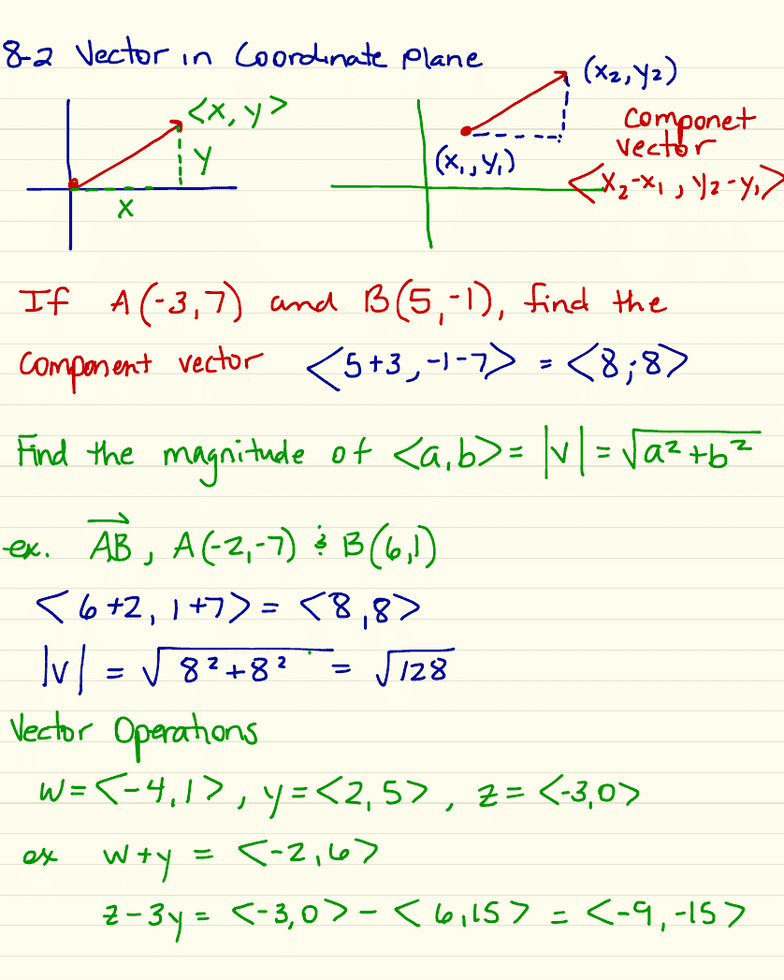 8-2 Vector in Coordinate Plane
<x, y>
y
x
(x₂, y₂)
(x₁, y₁)
Componet
vector
<x₂-x₁, y₂-y₁>
If A(-3,7) and B(5,-1), find the
component vector <5+3, -1-7> = <8,-8>
Find the magnitude of <a,b> = |v| = √a²+b²
ex. →AB, A(-2,-7) & B(6,1)
<6+2, 1+7> = <8,8>
|v| = √8²+8² = √128
Vector Operations
w=<-4,1>, y=<2,5>, z=<-3,0>
ex w+y = <-2,6>
z-3y = <-3,0> - <6,15> = <-9,-15>